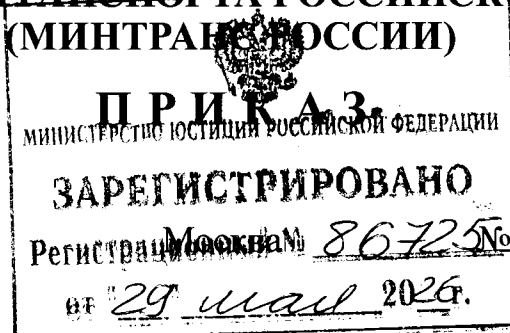 (МИНТРАНС РОССИИ)
П Р И К А З
МИНИСТЕРСТВО ЮСТИЦИИ РОССИЙСКОЙ ФЕДЕРАЦИИ
ЗАРЕГИСТРИРОВАНО
Регистрационный № 86725 №
Москва
от "29" мая 2026г.